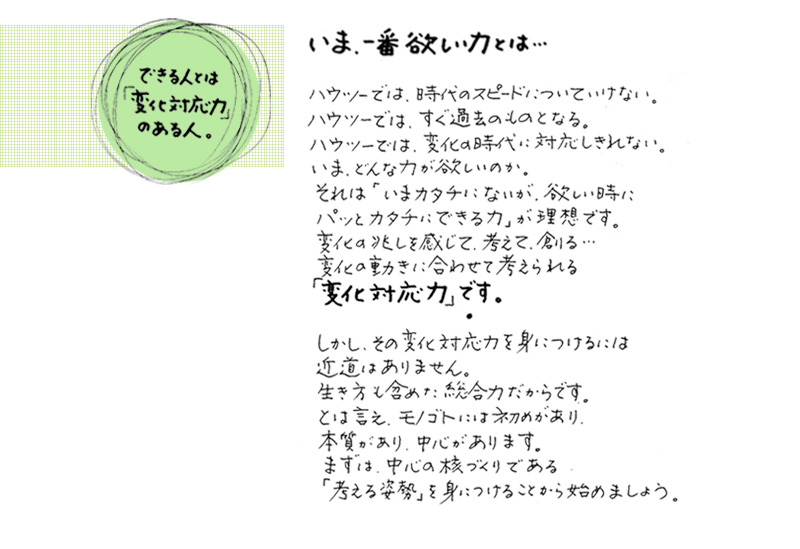 できる人とは
「変化対応力」
のある人。
いま、一番欲しい力とは…
ハウツーでは、時代のスピードについていけない。
ハウツーでは、すぐ過去のものとなる。
ハウツーでは、変化の時代に対応しきれない。
いま、どんな力が欲しいのか。
それは「いまカタチにないが、欲しい時に
パッとカタチにできる力」が理想です。
変化の兆しを感じて、考えて、創る…
変化の動きに合わせて考えられる
「変化対応力」です。
しかし、その変化対応力を身につけるには
近道はありません。
生き方も含めた総合力だからです。
とは言え、モノゴトには初めがあり、
本質があり、中心があります。
まずは、中心の核づくりである
「考える姿勢」を身につけることから始めましょう。